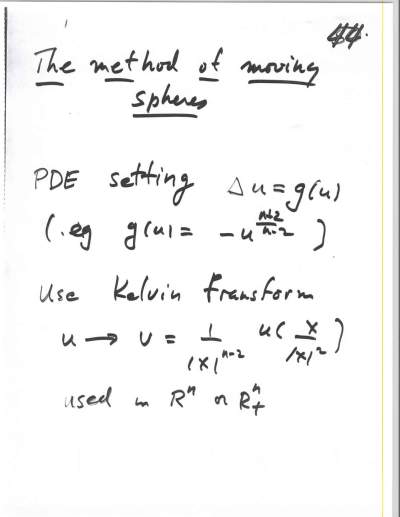 44.
The method of moving
spheres
PDE setting Δu = g(u)
(.eg g(u) = -u^{\frac{n+2}{n-2}} )
Use Kelvin Transform
u → v = \frac{1}{|x|^{n-2}} u( \frac{x}{|x|^2} )
used in R^n or R^n_+